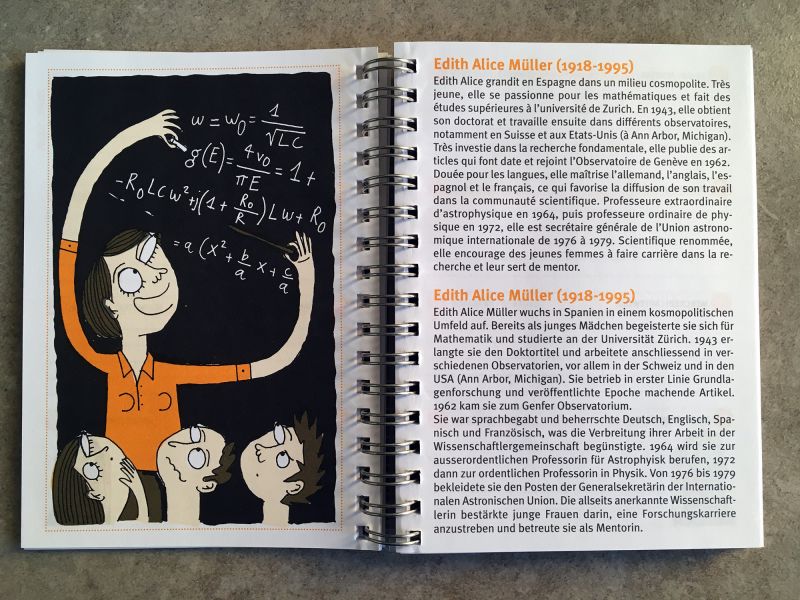 w = w₀ = 1/√LC
g(E) = 4v₀/πE = 1+
-R₀LCw²+j(1+R₀/R)Lw+R₀
= a(x²+b/a x+c/a
Edith Alice Müller (1918-1995)
Edith Alice grandit en Espagne dans un milieu cosmopolite. Très
jeune, elle se passionne pour les mathématiques et fait des
études supérieures à l'université de Zurich. En 1943, elle obtient
son doctorat et travaille ensuite dans différents observatoires,
notamment en Suisse et aux Etats-Unis (à Ann Arbor, Michigan).
Très investie dans la recherche fondamentale, elle publie des ar-
ticles qui font date et rejoint l'Observatoire de Genève en 1962.
Douée pour les langues, elle maîtrise l'allemand, l'anglais, l'es-
pagnol et le français, ce qui favorise la diffusion de son travail
dans la communauté scientifique. Professeure extraordinaire
d'astrophysique en 1964, puis professeure ordinaire de phy-
sique en 1972, elle est secrétaire générale de l'Union astrono-
mique internationale de 1976 à 1979. Scientifique renommée,
elle encourage des jeunes femmes à faire carrière dans la re-
cherche et leur sert de mentor.
Edith Alice Müller (1918-1995)
Edith Alice Müller wuchs in Spanien in einem kosmopolitischen
Umfeld auf. Bereits als junges Mädchen begeisterte sie sich für
Mathematik und studierte an der Universität Zürich. 1943 er-
langte sie den Doktortitel und arbeitete anschliessend in ver-
schiedenen Observatorien, vor allem in der Schweiz und in den
USA (Ann Arbor, Michigan). Sie betrieb in erster Linie Grundla-
genforschung und veröffentlichte Epoche machende Artikel.
1962 kam sie zum Genfer Observatorium.
Sie war sprachbegabt und beherrschte Deutsch, Englisch, Spa-
nisch und Französisch, was die Verbreitung ihrer Arbeit in der
Wissenschaftlergemeinschaft begünstigte. 1964 wird sie zur
ausserordentlichen Professorin für Astrophyisk berufen, 1972
dann zur ordentlichen Professorin in Physik. Von 1976 bis 1979
bekleidete sie den Posten der Generalsekretärin der Internatio-
nalen Astronischen Union. Die allseits anerkannte Wissenschaft-
lerin bestärkte junge Frauen darin, eine Forschungskarriere
anzustreben und betreute sie als Mentorin.